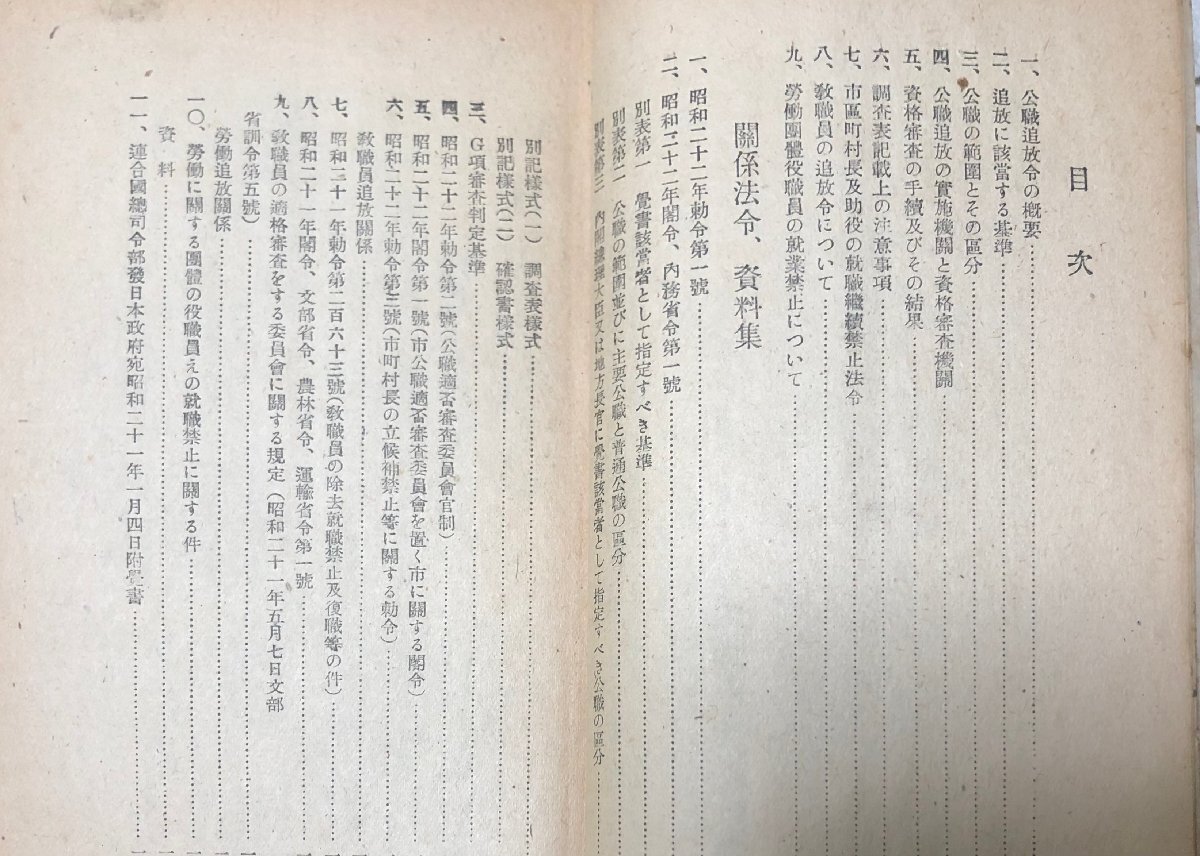 目次
一、公職追放令の概要
二、追放に該當する基準
三、公職の範圍とその區分
四、公職追放の實施機關と資格審査機關
五、資格審査の手續及びその結果
六、調査表記載上の注意事項
七、市區町村長及助役の就職繼續禁止法令
八、敎職員の追放令について
九、勞働團體役職員の就業禁止について
關係法令、資料集
一、昭和二十二年勅令第一號
二、昭和二十二年閣令、內務省令第一號
別表第一 覺書該當者として指定すべき基準
別表第二 公職の範圍並びに主要公職と普通公職の區分
別表第三 內閣總理大臣又は地方長官に覺書該當者として指定すべき公職の區分
別記樣式(一) 調査表樣式
別記樣式(二) 確認書樣式
三、G項審査判定基準
四、昭和二十二年勅令第二號(公職適否審査委員會官制)
五、昭和二十二年閣令第一號(市公職適否審査委員會を置く市に關する閣令)
六、昭和二十二年勅令第三號(市町村長の立候補禁止等に關する勅令)
敎職員追放關係
七、昭和二十一年勅令第二百六十三號(敎職員の除去就職禁止及復職等の件)
八、昭和二十一年閣令、文部省令、農林省令、運輸省令第一號
九、敎職員の適格審査をする委員會に關する規定(昭和二十一年五月七日文部
省訓令第五號)
勞働追放關係
一〇、勞働に關する團體の役職員えの就職禁止に關する件
資料
一一、連合國總司令部發日本政府宛昭和二十一年一月四日附覺書